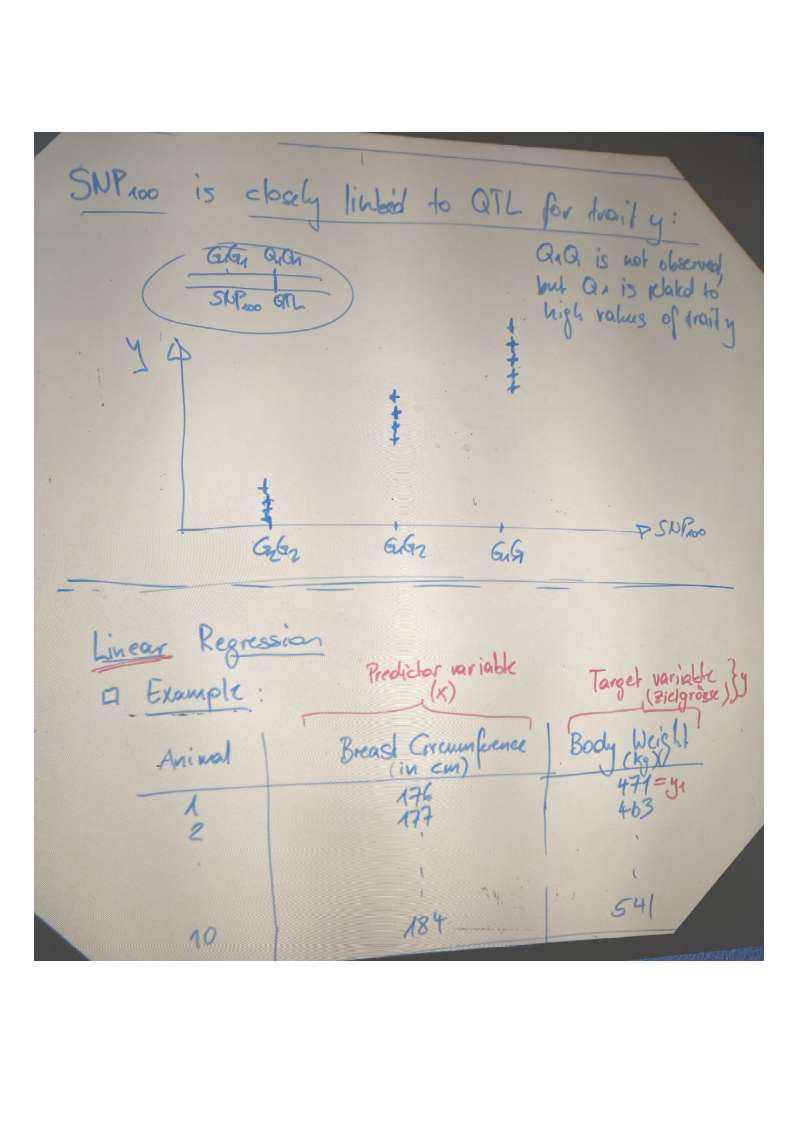 SNP100 is closely linked to QTL for trait y:
G1G1 Q1Q1
SNP100 QTL
Q1Q1 is not observed,
but Q1 is related to
high values of trait y
y
SNP100
G2G2 G1G2 G1G1
Linear Regression
Example:
Predictor variable
(x)
Target variable
(Zielgrösse) } y
Animal Breast Circumference
(in cm) Body Weight
(kg)
1 176 471 = y1
2 177 463
10 184 541